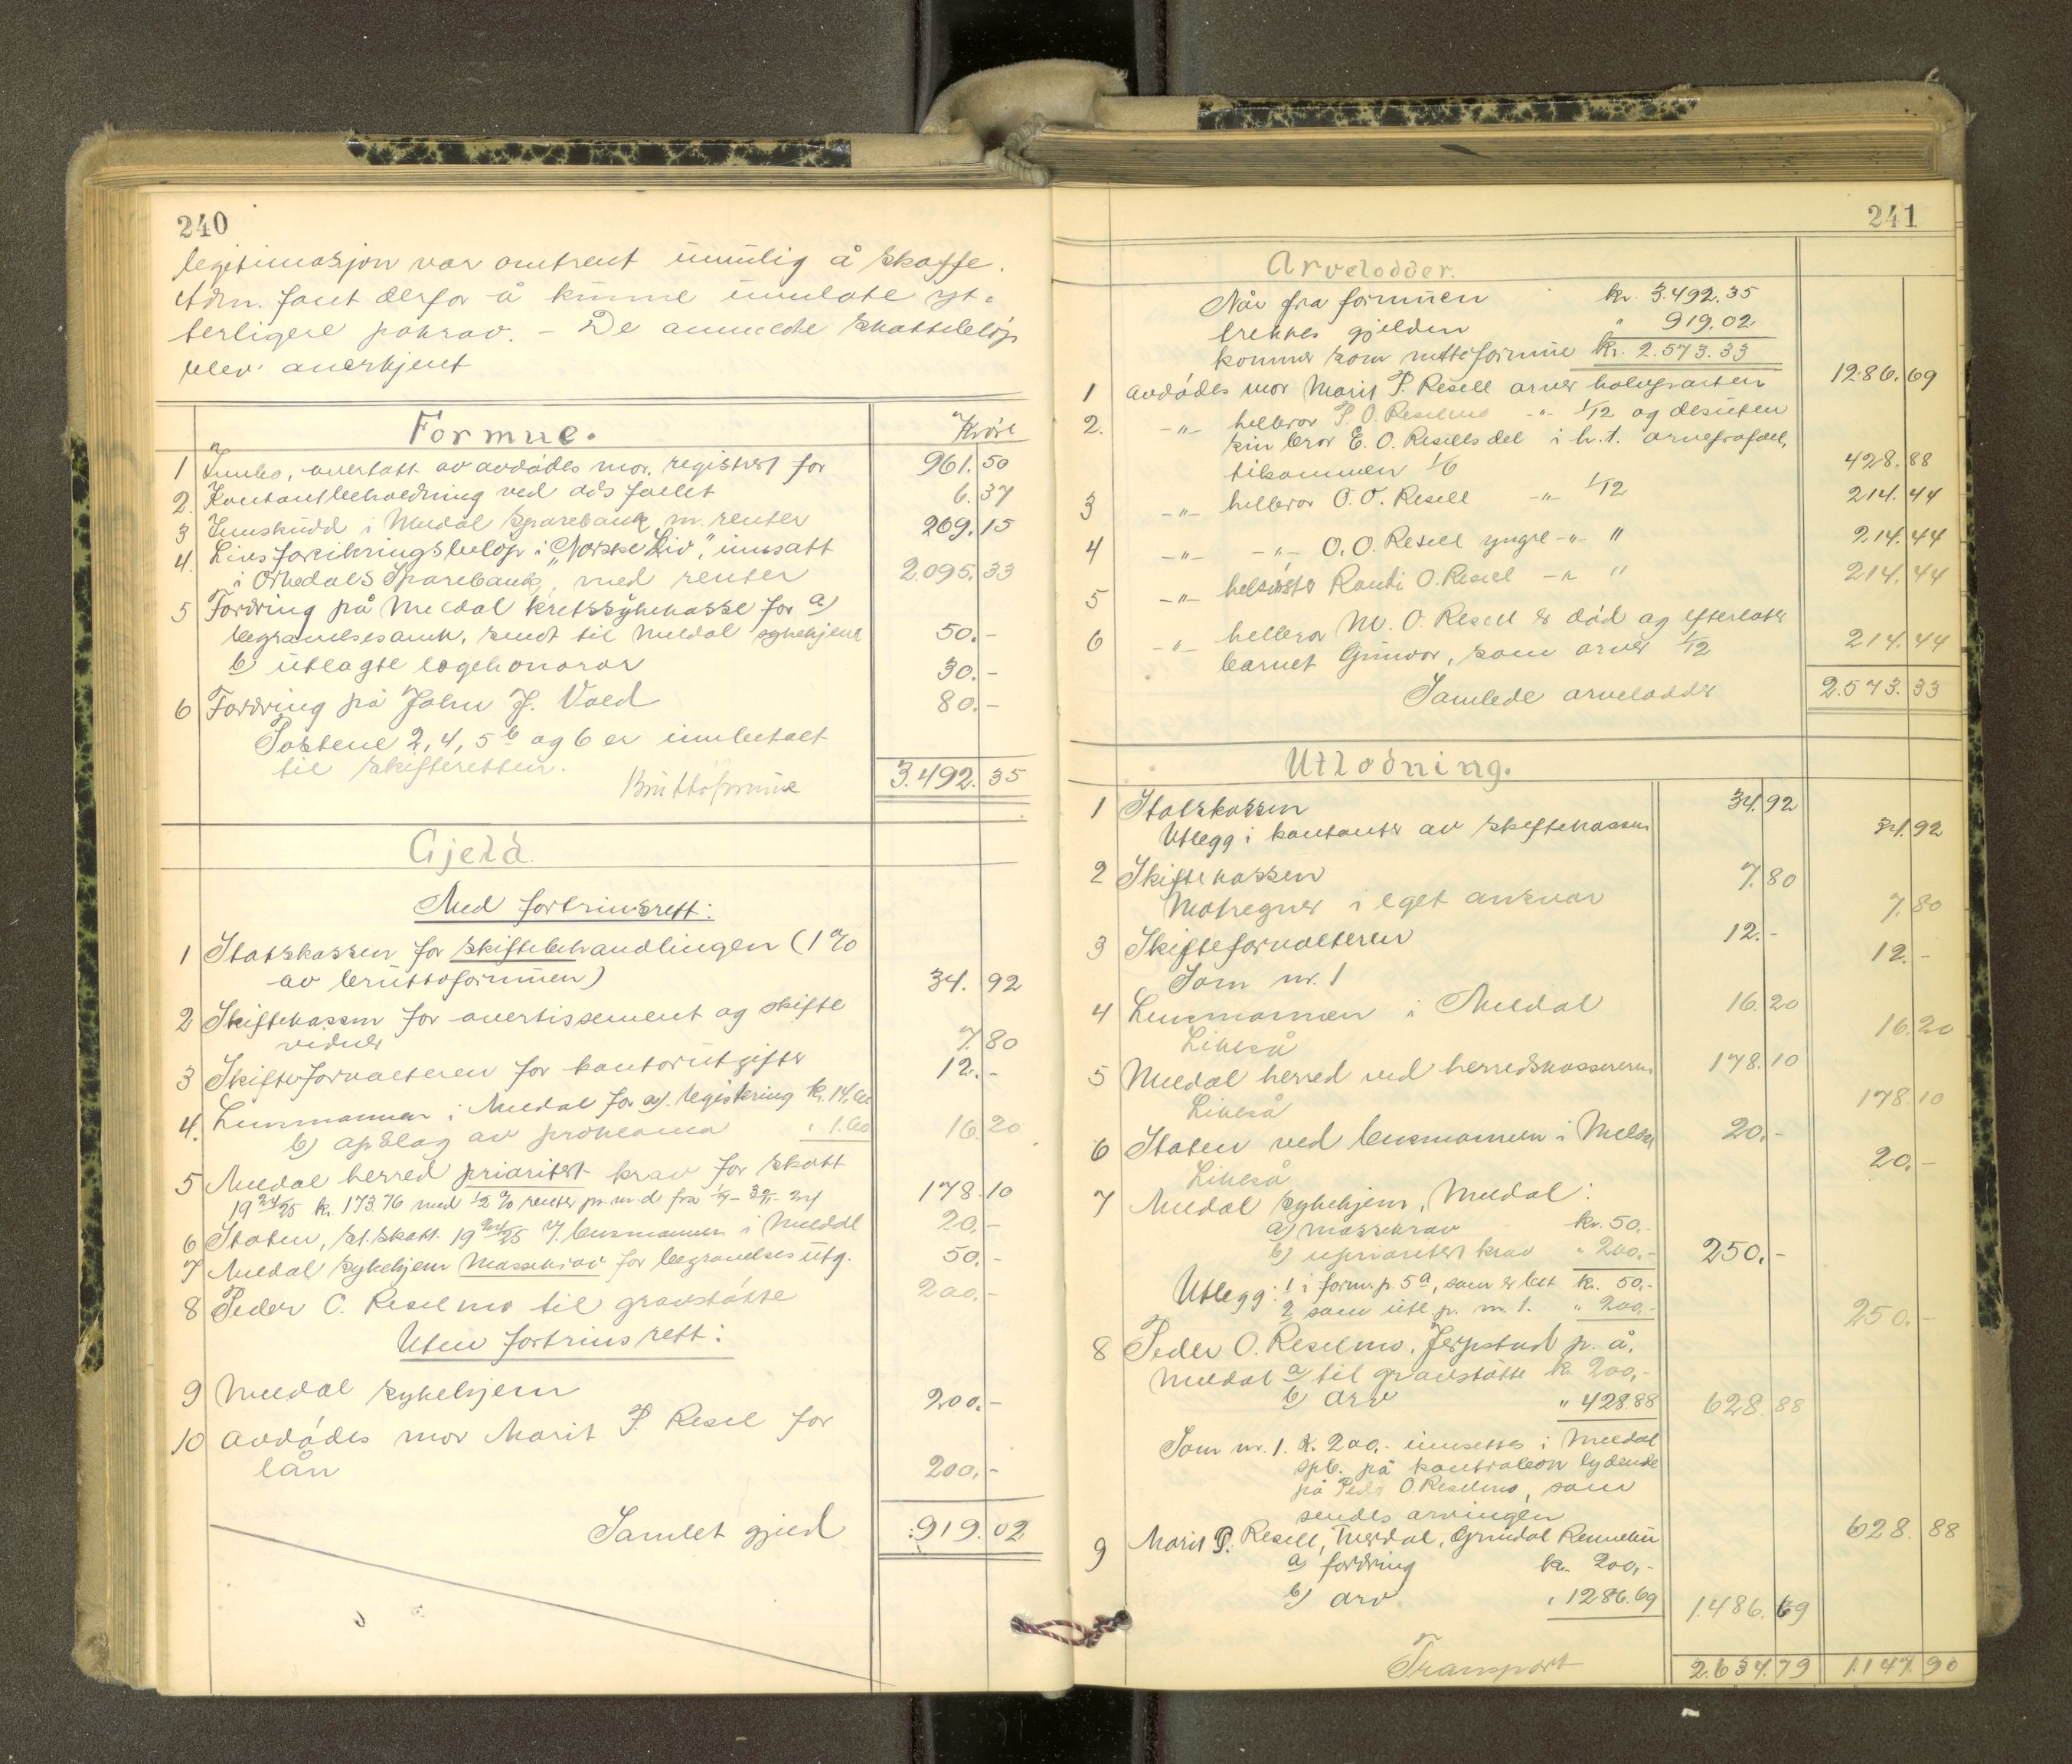 240
legitimasjon var omtrent umulig å skaffe.
Adm. fant derfor å kunne unnlate yt-
terligere påkrav. – De anmeldte skattebeløp
blev anerkjent
Formue.
Kroner
1 Innbo, overtatt av avdødes mor, registrert for 961.50
2. Kontantbeholdning ved dødsfallet 6.37
3 Innskudd i Meldal Sparebank m. renter 269.15
4. Livsforsikringsbeløp i "Norske Liv", innsatt
i Orkedals Sparebank, med renter 2.095.33
5 Fordring på Meldal kretssykekasse for a)
begravelsesomk. sendt til Meldal sykehjem 50.-
b) utlagte legehonorar 30.-
6 Fordring på John J. Vold 80.-
Postene 2, 4, 5 b og 6 er innbetalt
til skifteretten.
Bruttoformue 3.492.35
Gjeld.
Med fortrinsrett:
1 Statskassen for skiftebehandlingen (1%
av bruttoformuen) 34.92
2 Skiftekassen for avertissement og skifte
vidner 7.80
3 Skifteforvalteren for kontorutgifter 12.-
4. Lensmannen i Meldal for a). registrering kr. 14.60
b) opslag av proklama " 1.60 16.20
5 Meldal herred prioritert krav for skatt
1924/25 kr. 173.76 med 1/2 % renter pr. m.d fra 178.10
6 Staten, st.skatt. 1924/25 v/ lensmannen i Meldal 20.-
7 Meldal sykehjem massekrav for begravelsesutg. 50.-
8 Peder O. Reselmo til gravstøtte 200.-
Uten fortrinsrett:
9 Meldal sykehjem 200.-
10 Avdødes mor Marit P. Resell for
lån 200.-
Samlet gjeld 919.02
241
Arvelodder.
Når fra formuen kr. 3.492.35
trekkes gjelden " 919.02
kommer som nettoformue kr. 2.573.33
1 Avdødes mor Marit P. Resell arver halvparten 1286.69
2. -"- helbror P. O. Reselmo -"- 1/12 og desuten
sin bror E. O. Resells del i h.t. arvefrafall,
tilsammen 1/6 428.88
3 -"- helbror O. O. Resell -"- 1/12 214.44
4 -"- -"- O. O. Resell yngre -"- " 214.44
5 -"- helsøster Randi O. Resell -"- " 214.44
6 -"- helbror M. O. Resell er død og efterlater
barnet Gunvor, som arver 1/12 214.44
Samlede arvelodder 2.573.33
Utlodning.
1 Statskassen 34.92
Utlegg i kontanter av skiftekassen 34.92
2 Skiftekassen 7.80
Motregner i eget ansvar 7.80
3 Skifteforvalteren 12.-
Som nr. 1 12.-
4 Lensmannen i Meldal 16.20
Likeså 16.20
5 Meldal herred ved herredskassereren 178.10
Likeså 178.10
6 Staten ved lensmannen i Meldal 20.-
Likeså 20.-
7 Meldal sykehjem, Meldal:
a) massekrav kr. 50.-
b) uprioritert krav " 200.- 250.-
Utlegg: 1 i form. p. 5a, som er bet kr. 50.-
2 som utl. p. nr. 1. " 200.- 250.-
8 Peder O. Reselmo, Jerpstad p. å.
Meldal a) til gravstøtte kr. 200,-
b) arv " 428.88 628.88
Som nr. 1. Kr. 200.- innsettes i Meldal
spb. på kontrabok lydende
på Peder O Reselmo, som
sendes arvingen 628.88
9 Marit P. Resell, Meldal, Grindal Rennebu
a) fordring kr. 200,-
b) arv " 1286.69 1486.69
Transport 2.634.79 1.147.90